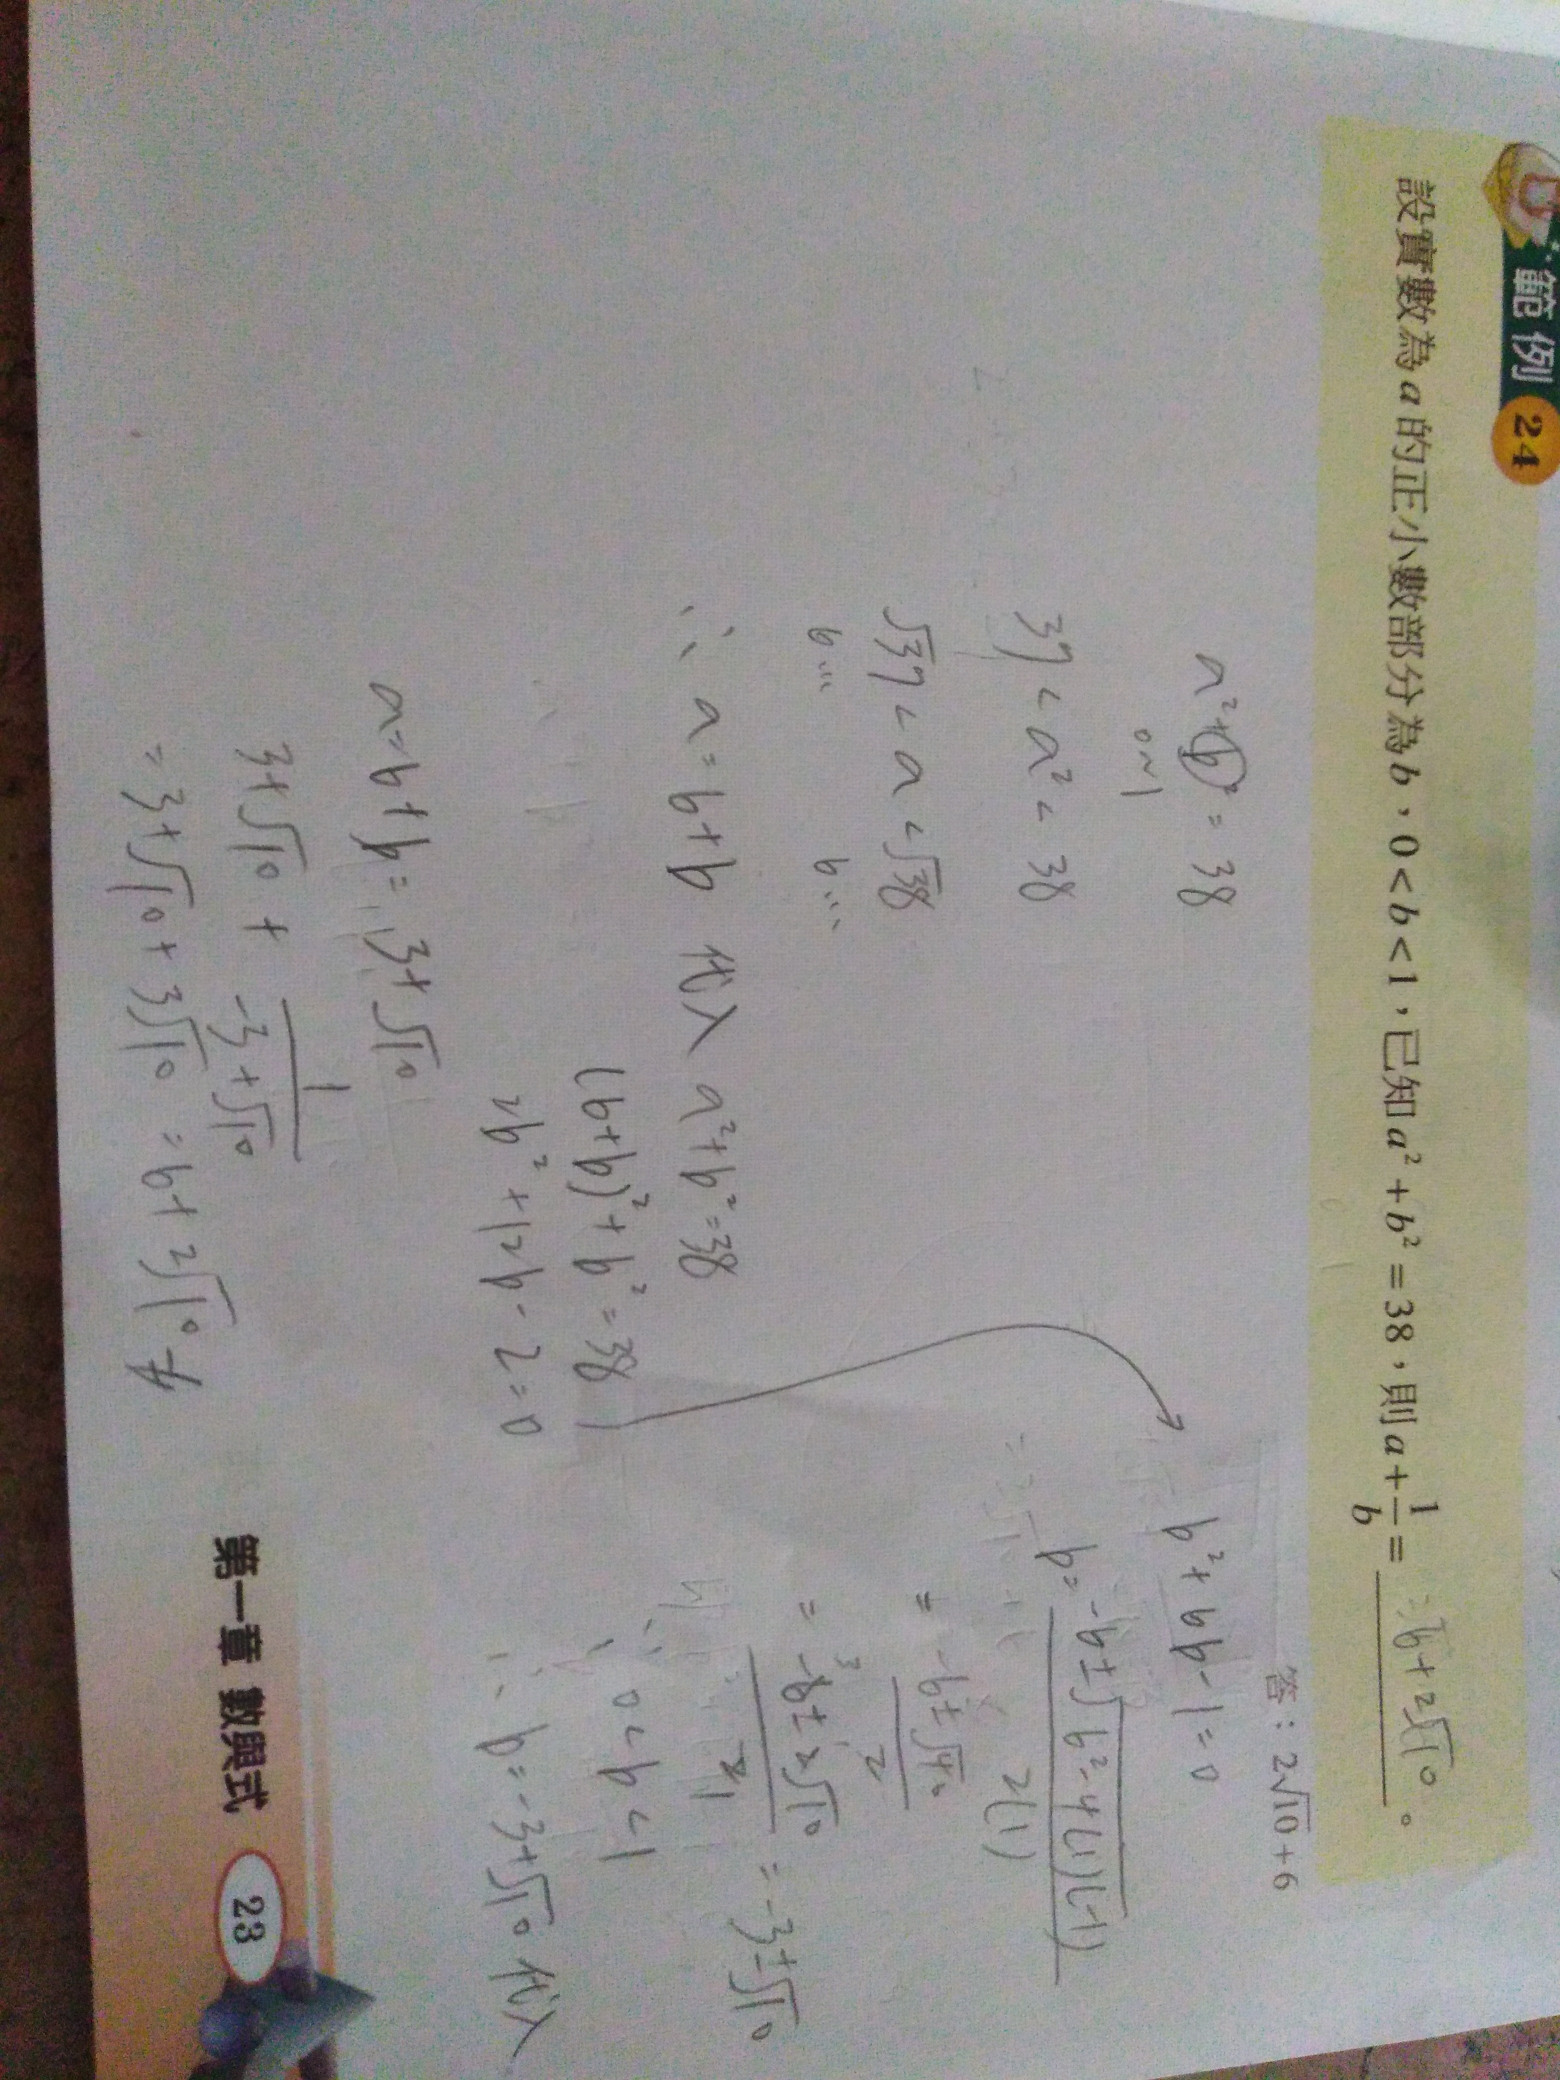 範例 24
設實數為a的正小數部分為b，0<b<1，已知a²+b²=38，則a+1/b= 6+2√10 。
答：2√10+6
a²+b²=38
0~1
37<a²<38
√37<a<√38
6... 6...
∴ a=6+b 代入 a²+b²=38
(6+b)²+b²=38
2b²+12b-2=0
b²+6b-1=0
b=-6±√6²-4(1)(-1)
2(1)
= -6±√40
2
= -6±2√10 = -3±√10
2
∵ 0<b<1
∴ b=-3+√10 代入
a=6+b=3+√10
3+√10 + 1
-3+√10
=3+√10+3√10 =6+2√10
第一章 數與式 23